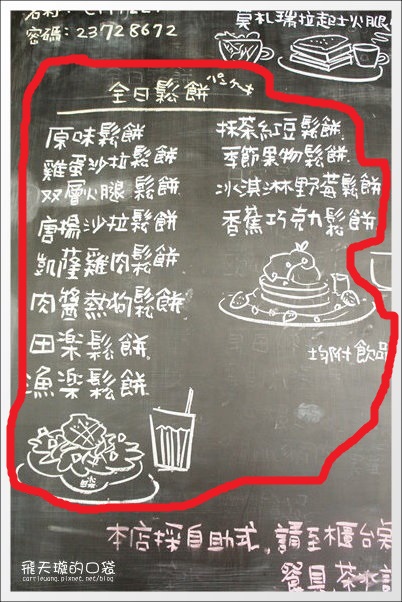 密碼：23728672
莫札瑞拉起士火腿
全日鬆餅 パンケーキ
原味鬆餅
雞蛋沙拉鬆餅
双層火腿鬆餅
唐揚沙拉鬆餅
凱薩雞肉鬆餅
肉醬熱狗鬆餅
田楽鬆餅
漁楽鬆餅
抹茶紅豆鬆餅
季節果物鬆餅
冰淇淋野莓鬆餅
香蕉巧克力鬆餅
均附飲品
本店採自助式，請至櫃台
餐具，茶水請
飛天璇的口袋
carrieuang.pixnet.net/blog